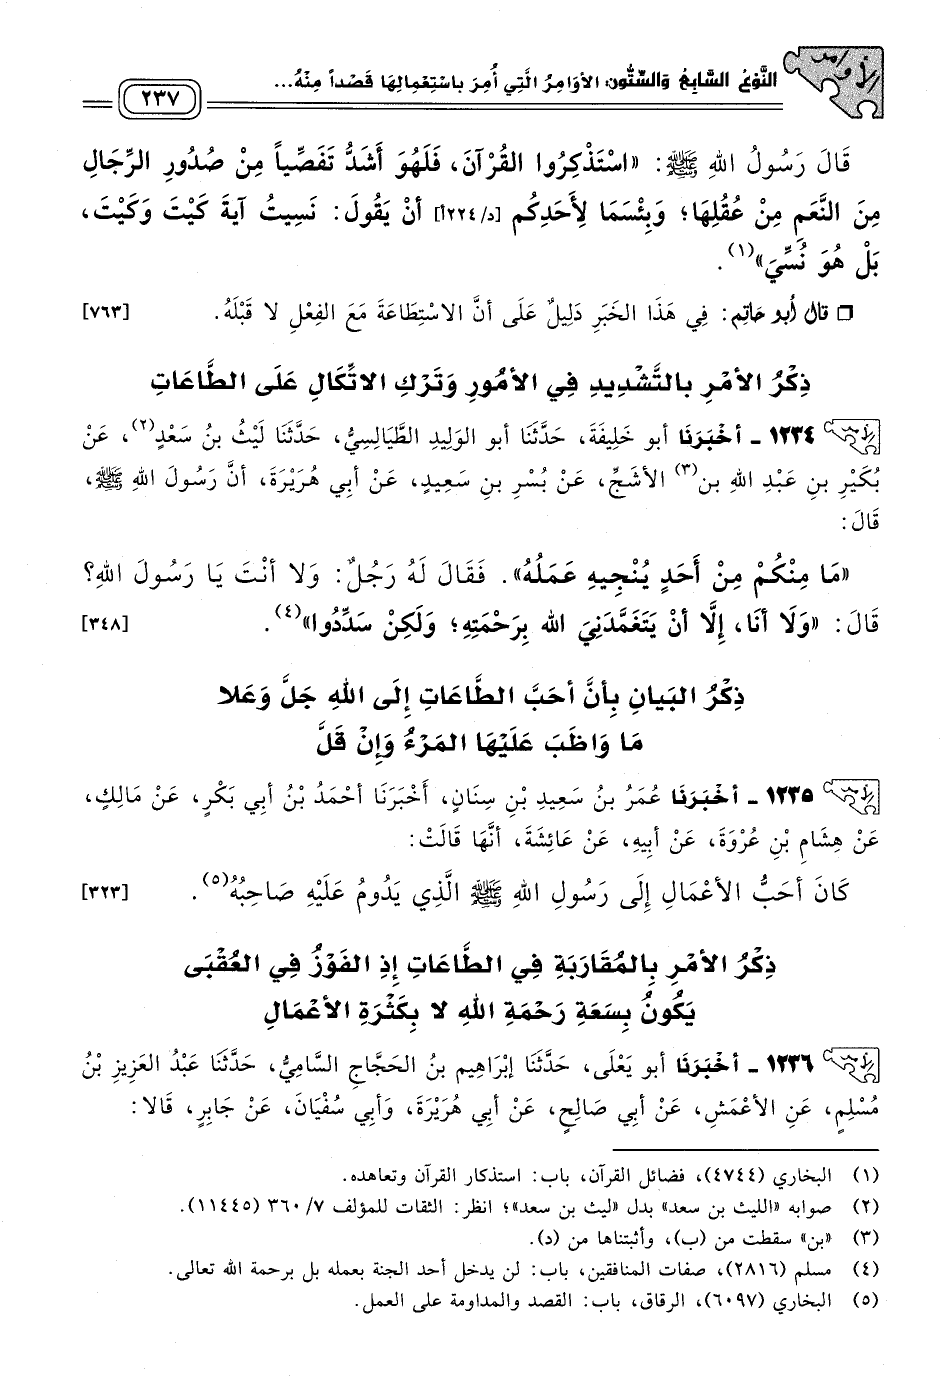 الأوامر
النَّوْعُ السَّابِعُ وَالسِّتُّون: الأوَامِرُ الَّتِي أُمِرَ بِاسْتِعْمِالِهَا قَصْداً مِنْهُ...
٢٣٧
قَالَ رَسُولُ اللهِ ﷺ: «اسْتَذْكِرُوا القُرْآنَ، فَلَهُوَ أَشَدُّ تَفَصِّياً مِنْ صُدُورِ الرِّجَالِ
مِنَ النَّعَمِ مِنْ عُقُلِهَا؛ وَبِئْسَمَا لِأَحَدِكُم [د/٢٢٤أ] أنْ يَقُولَ: نَسِيتُ آيةَ كَيْتَ وَكَيْتَ،
بَلْ هُوَ نُسِّيَ»(١).
❒ قال أبو حَاتِم: فِي هَذَا الخَبَرِ دَلِيلٌ عَلَى أنَّ الاسْتِطَاعَةَ مَعَ الفِعْلِ لا قَبْلَهُ. [٧٦٣]
ذِكْرُ الأمْرِ بالتَّشْدِيدِ فِي الأمُورِ وَتَرْكِ الاتِّكَالِ عَلَى الطَّاعَاتِ
١٢٣٤ - أخْبَرَنَا أبو خَلِيفَةَ، حَدَّثَنَا أبو الوَلِيدِ الطَّيَالِسِيُّ، حَدَّثَنَا لَيْثُ بنُ سَعْدٍ(٢)، عَنْ
بُكَيْرِ بنِ عَبْدِ اللهِ بن(٣) الأشَجِّ، عَنْ بُسْرِ بنِ سَعِيدٍ، عَنْ أبِي هُرَيْرَةَ، أنَّ رَسُولَ اللهِ ﷺ،
قَالَ:
«مَا مِنْكُمْ مِنْ أَحَدٍ يُنْجِيهِ عَمَلُهُ». فَقَالَ لَهُ رَجُلٌ: وَلا أنْتَ يَا رَسُولَ اللهِ؟
قَالَ: «وَلَا أَنَا، إلَّا أنْ يَتَغَمَّدَنِيَ الله بِرَحْمَتِهِ؛ وَلَكِنْ سَدِّدُوا»(٤). [٣٤٨]
ذِكْرُ البَيانِ بِأنَّ أحَبَّ الطَّاعَاتِ إِلَى اللهِ جَلَّ وَعَلا
مَا وَاظَبَ عَلَيْهَا المَرْءُ وَإنْ قَلَّ
١٢٣٥ - أخْبَرَنَا عُمَرُ بنُ سَعِيدِ بْنِ سِنَانٍ، أَخْبَرَنَا أحْمَدُ بْنُ أبِي بَكْرٍ، عَنْ مَالِكٍ،
عَنْ هِشَامِ بْنِ عُرْوَةَ، عَنْ أبِيهِ، عَنْ عَائِشَةَ، أنَّهَا قَالَتْ:
كَانَ أحَبُّ الأعْمَالِ إلَى رَسُولِ اللهِ ﷺ الَّذِي يَدُومُ عَلَيْهِ صَاحِبُهُ(٥). [٣٢٣]
ذِكْرُ الأمْرِ بِالمُقَارَبَةِ فِي الطَّاعَاتِ إذِ الفَوْزُ فِي العُقْبَى
يَكُونُ بِسَعَةِ رَحْمَةِ اللهِ لا بِكَثْرَةِ الأعْمَالِ
١٢٣٦ - أخْبَرَنَا أبو يَعْلَى، حَدَّثَنَا إبْرَاهِيم بنُ الحَجَّاجِ السَّامِيُّ، حَدَّثَنَا عَبْدُ العَزِيزِ بْنُ
مُسْلِمٍ، عَنِ الأعْمَشِ، عَنْ أبِي صَالِحٍ، عَنْ أبِي هُرَيْرَةَ، وَأبِي سُفْيَانَ، عَنْ جَابِرٍ، قَالا:
(١) البخاري (٤٧٤٤)، فضائل القرآن، باب: استذكار القرآن وتعاهده.
(٢) صوابه «الليث بن سعد» بدل «ليث بن سعد»؛ انظر: الثقات للمؤلف ٧/ ٣٦٠ (١١٤٤٥).
(٣) «بن» سقطت من (ب)، وأثبتناها من (د).
(٤) مسلم (٢٨١٦)، صفات المنافقين، باب: لن يدخل أحد الجنة بعمله بل برحمة الله تعالى.
(٥) البخاري (٦٠٩٧)، الرقاق، باب: القصد والمداومة على العمل.